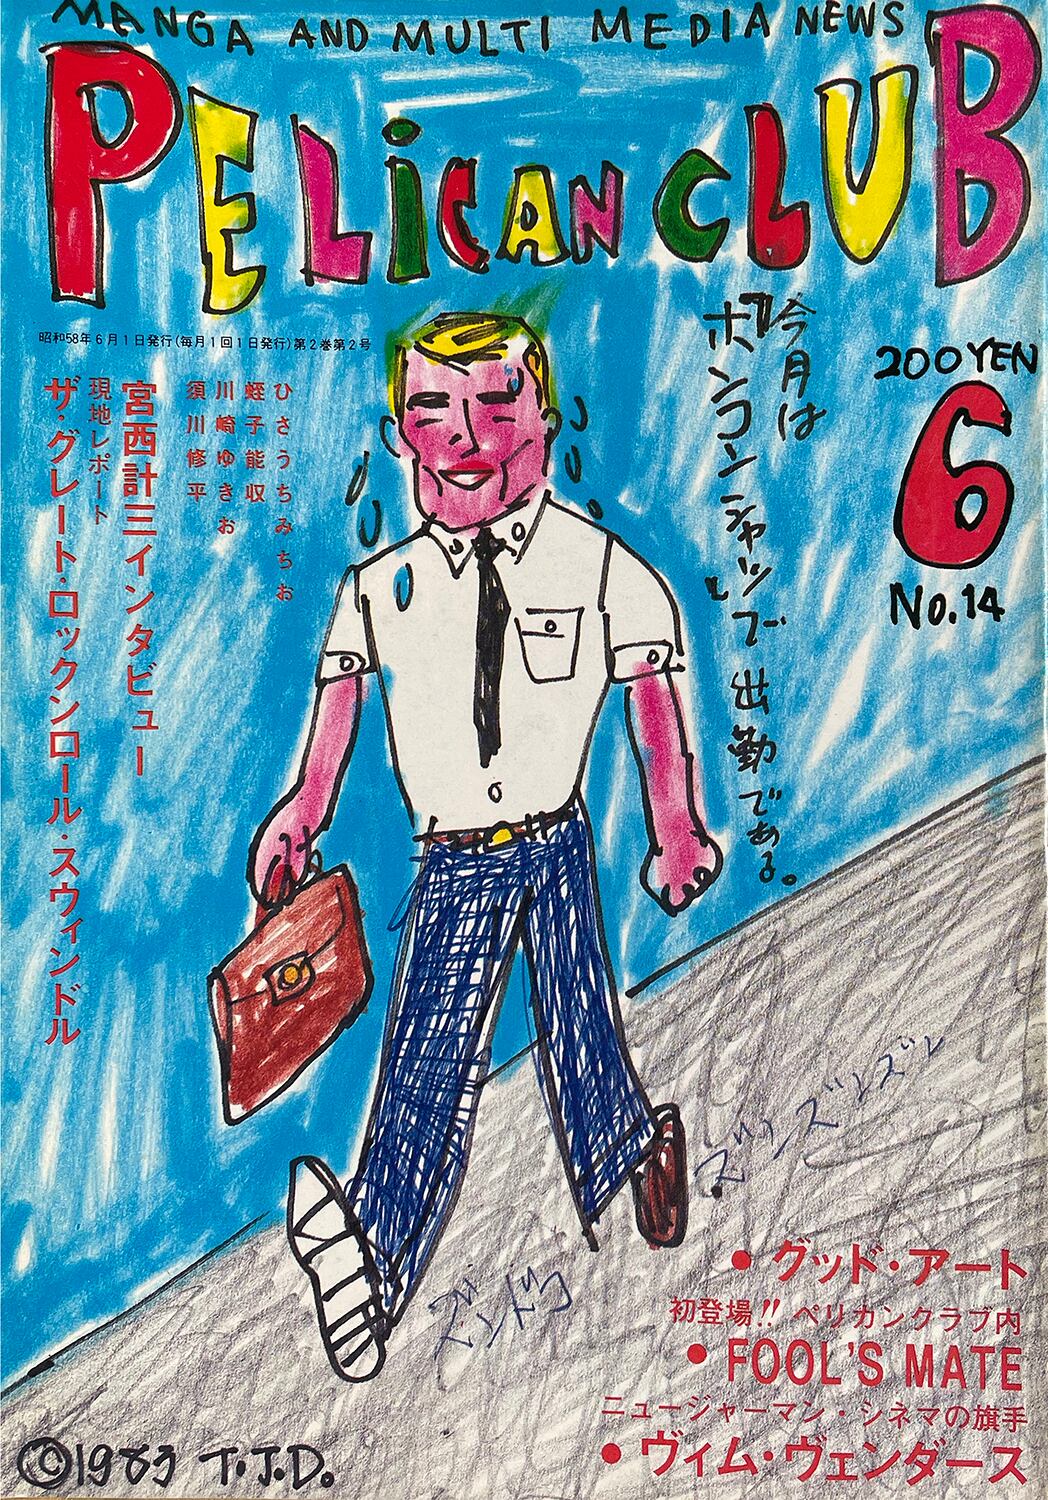 MANGA AND MULTI MEDIA NEWS
PELiCAN CLUB
昭和58年6月1日発行(毎月1回1日発行)第2巻第2号
200YEN
6
No.14
『今月は
ホンコンシャツ』で出勤である。
ひさうちみちお
蛭子能収
川崎ゆきお
須川修平
宮西計三インタビュー
現地レポート
ザ・グレート・ロックンロール・スウィンドル
ズンズンズン
• グッド・アート
初登場!! ペリカンクラブ内
• FOOL'S MATE
ニュージャーマン・シネマの旗手
• ヴィム・ヴェンダース
©1983 T.J.D.